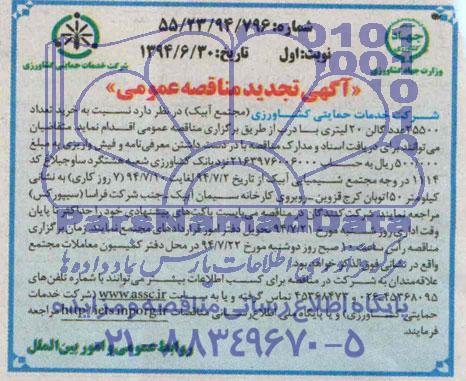 شماره: ۵۵/۲۳/۹۴/۷۹۶
نوبت: اول تاریخ: ۱۳۹۴/۶/۳۰
وزارت جهاد کشاورزی
شرکت خدمات حمایتی کشاورزی
«آگهی تجدید مناقصه عمومی»
شرکت خدمات حمایتی کشاورزی (مجتمع آبیک) در نظر دارد نسبت به خرید تعداد
۲۵۵۰۰ عدد گالن ۲۰ لیتری با درب از طریق برگزاری مناقصه عمومی اقدام نماید. متقاضیان
می‌توانند برای دریافت اسناد و مدارک مناقصه با در دست داشتن معرفی‌نامه و فیش واریزی به مبلغ
۵۰۰/۰۰۰ ریال به حساب نزد بانک کشاورزی شعبه هشتگرد ساوجبلاغ کد
۱۱۰۴ در وجه مجتمع شیمیایی آبیک از تاریخ ۹۴/۷/۲ لغایت ۹۴/۷/۱۰ (۷ روز کاری) به نشانی
کیلومتر ۵۰ اتوبان کرج قزوین - روبروی کارخانه سیمان آبیک - جنب شرکت فراسا (سیپورکس)
مراجعه نمایند. شرکت کنندگان در مناقصه می‌بایست پاکت‌های پیشنهادی خود را حداکثر تا پایان
وقت اداری روز ۹۴/۷/۲۱ تحویل دفتر امور قراردادهای مجتمع نمایند. زمان برگزاری
مناقصه رأس ساعت ۱۰ صبح روز دوشنبه مورخ ۹۴/۷/۲۲ در محل دفتر کمیسیون معاملات مجتمع
واقع در نشانی فوق‌الذکر خواهد بود.
علاقه‌مندان به شرکت در مناقصه برای کسب اطلاعات بیشتر می‌توانند با شماره تلفن‌های
۴۵۳۶۸۰۹۵-۰۲۶ تماس گرفته و یا به سایت www.assc.ir (شرکت خدمات
حمایتی کشاورزی) و یا پایگاه ملی اطلاع رسانی مناقصات http://iets.mporg.ir مراجعه
فرمایند.
روابط عمومی و امور بین الملل
پایگاه اطلاع رسانی مناقصه
۰۲۱-۸۸۳۴۹۶۷۰-۵